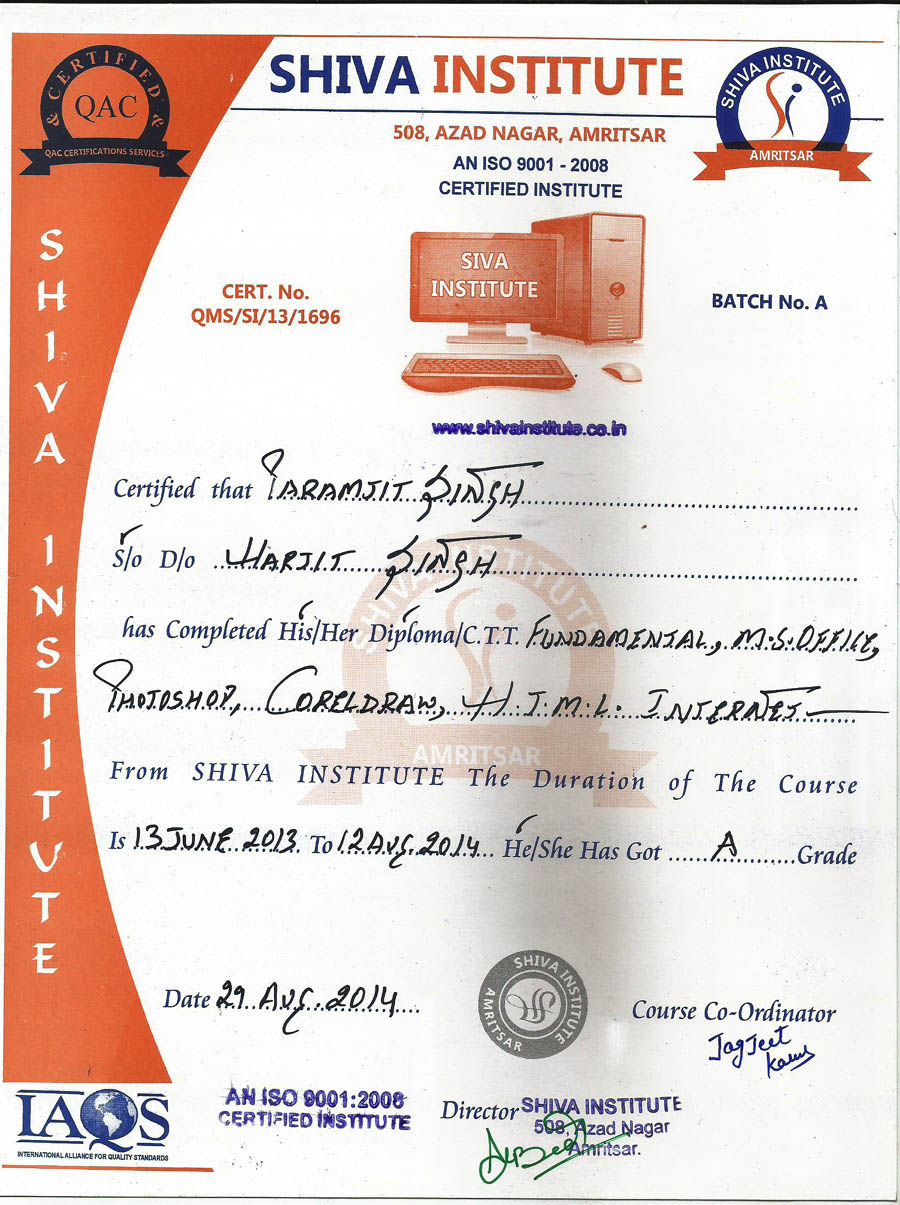 CERTIFIED
QAC
& &
QAC CERTIFICATIONS SERVICES
SHIVA INSTITUTE
SHIVA INSTITUTE
AMRITSAR
508, AZAD NAGAR, AMRITSAR
AN ISO 9001 - 2008
CERTIFIED INSTITUTE
SIVA
INSTITUTE
CERT. No.
QMS/SI/13/1696
BATCH No. A
www.shivainstitute.co.in
SHIVA INSTITUTE
Certified that PARAMJIT SINGH
S/o D/o HARJIT SINGH
SHIVA INSTITUTE
has Completed His/Her Diploma/C.T.T. FUNDAMENTAL, M.S.OFFICE,
PHOTOSHOP, CORELDRAW, H.T.M.L. INTERNET
AMRITSAR
From SHIVA INSTITUTE The Duration of The Course
Is 13 JUNE 2013 To 12 AUG. 2014 He/She Has Got A Grade
Date 29. AUG. 2014
SHIVA INSTITUTE
AMRITSAR
Course Co-Ordinator
JagJeet
Kaur
IAQS
INTERNATIONAL ALLIANCE FOR QUALITY STANDARDS
AN ISO 9001:2008
CERTIFIED INSTITUTE
Director SHIVA INSTITUTE
508, Azad Nagar
Amritsar.